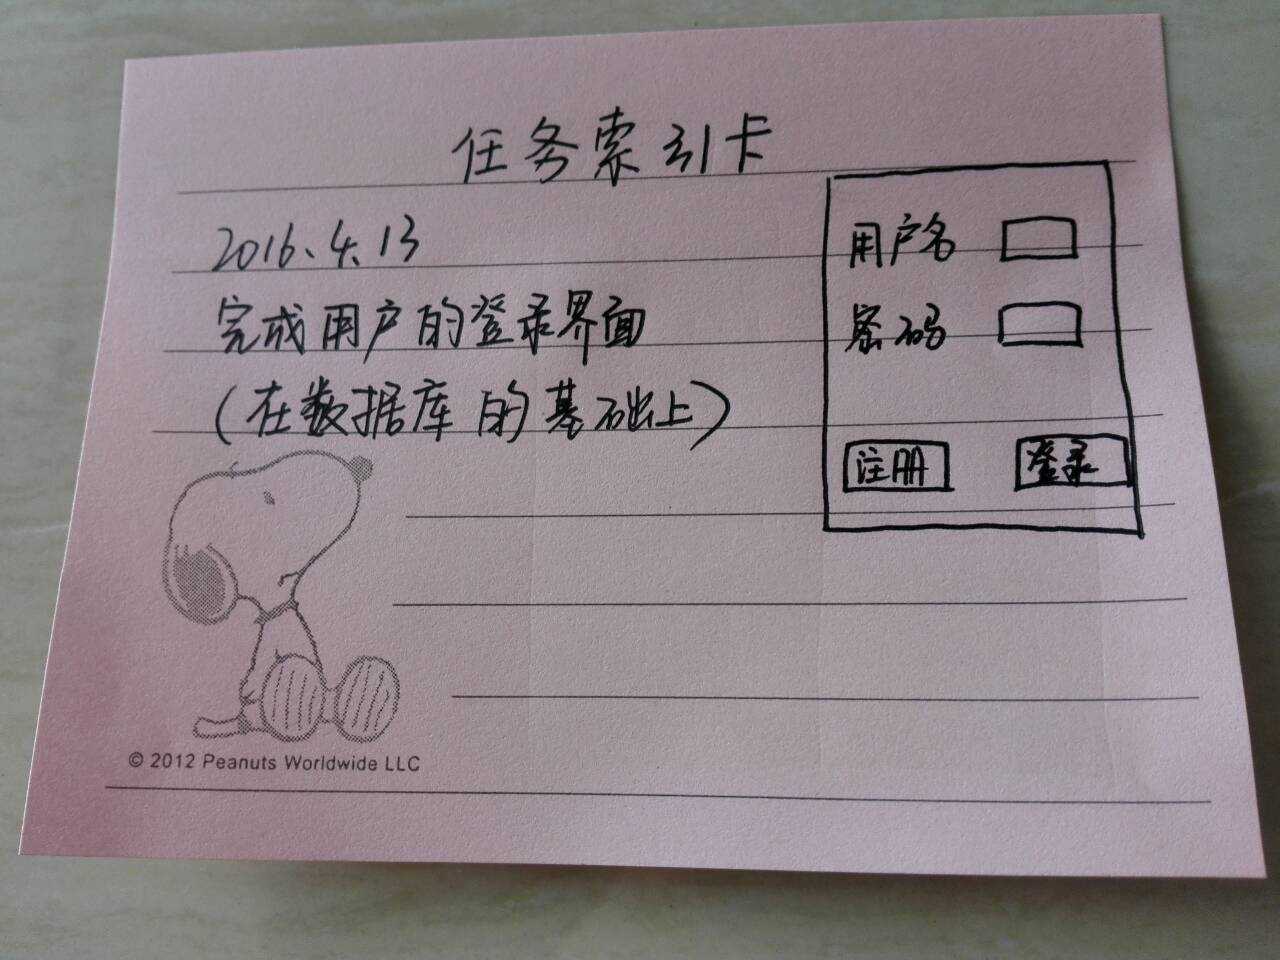 任务索引卡
2016.4.13
完成用户的登录界面
(在数据库的基础上)
用户名
密码
注册 登录
© 2012 Peanuts Worldwide LLC